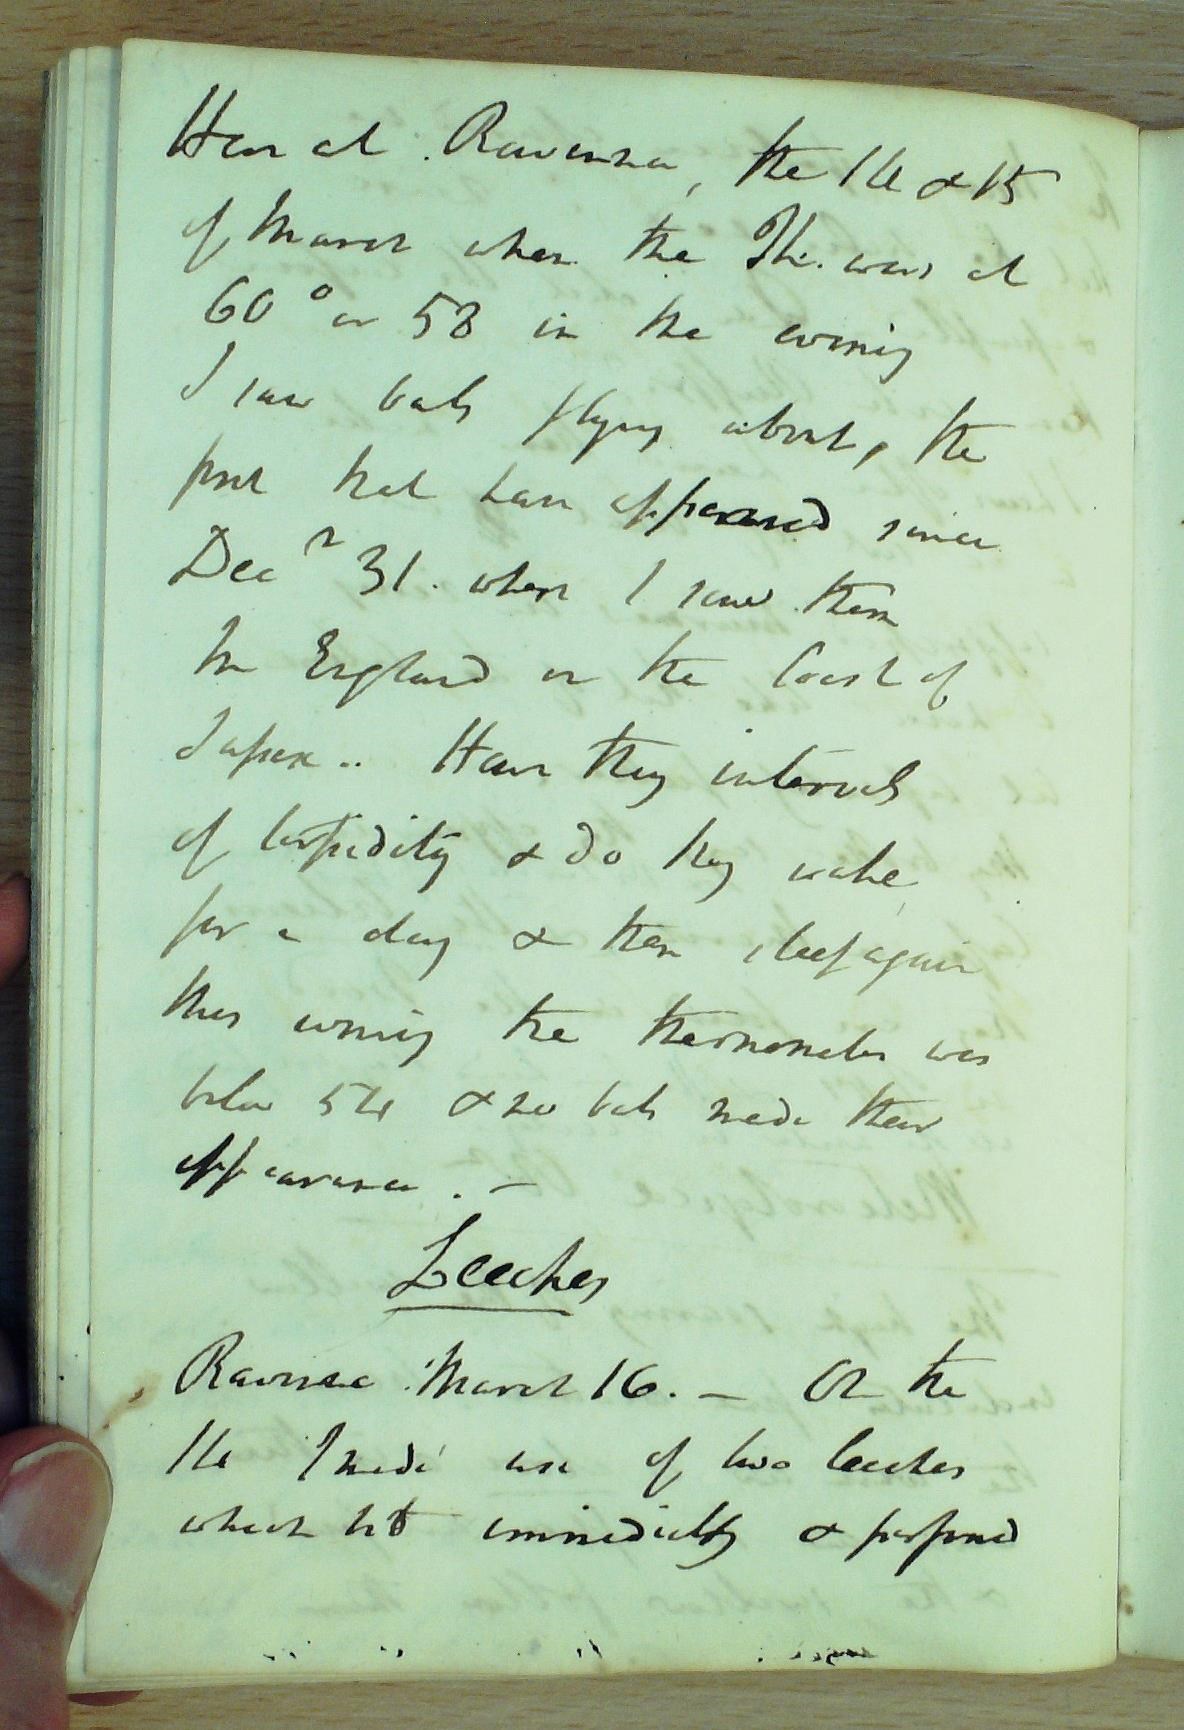 Here at Ravenna, the 14 & 15
of March when the Th. was at
60° or 58 in the evening
I saw bats flying about, the
first that have appeared since
Decr 31. when I saw them
In England on the Coast of
Have they intervals
of torpidity & do they wake
for a day & then sleep again
this evening the thermometer was
below 54 & no bats made their
appearance . –
Leeches
Ravenna March 16. – On the
14 I made use of two leeches
which bit immediately & performed